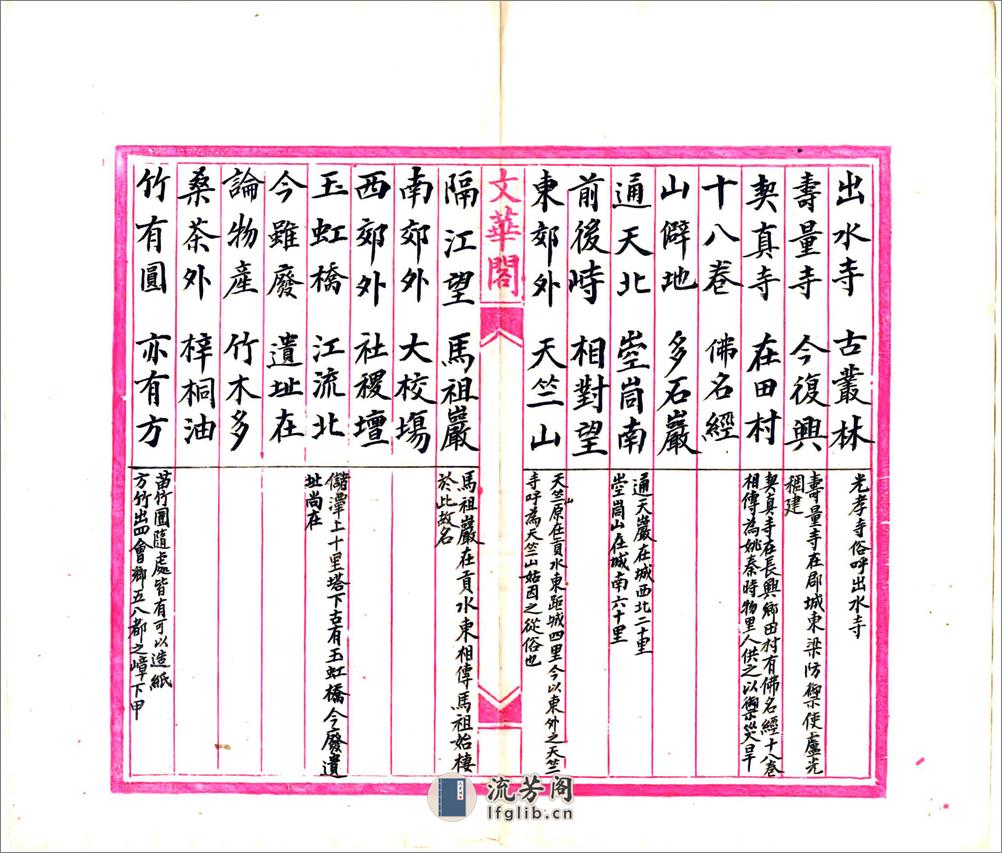 出水寺 古叢林
光孝寺俗呼出水寺
壽量寺 今復興
壽量寺在郡城東梁防禦使盧光稠建
契真寺 在田村
契真寺在長興鄉田村有佛名經十八卷
相傳為姚秦時物里人供之以禦災旱
十八卷 佛名經
山僻地 多石巖
通天北 崆峒南
通天巖在城西北二十里
崆峒山在城南六十里
前後峙 相對望
東郊外 天竺山
天竺山原在貢水東距城四里今以東外之天竺
寺呼為天竺山姑因之從俗也
文華閣
隔江望 馬祖巖
馬祖巖在貢水東相傳馬祖始棲
於此故名
南郊外 大校場
西郊外 社稷壇
玉虹橋 江流北
儲潭上十里塔下古有玉虹橋今廢遺
址尚在
今雖廢 遺址在
論物產 竹木多
桑茶外 梓桐油
竹有圓 亦有方
苗竹圓隨處皆有可以造紙
方竹出四會鄉五八都之嶂下甲
流芳阁
lfglib.cn